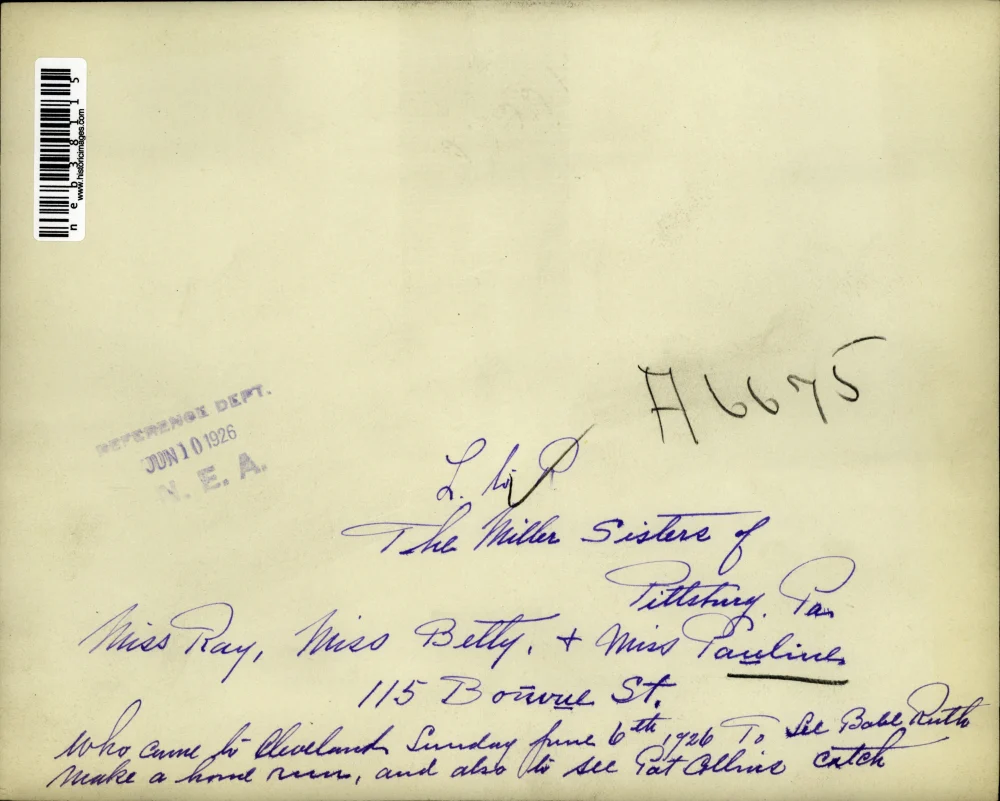 neb38115
www.historicimages.com
A6675
REFERENCE DEPT.
JUN 10 1926
N. E. A.
L. to R
The Miller Sisters of
Pittsburg. Pa.
Miss Ray, Miss Betty, + Miss Pauline
115 Bonvue St.
who came to Cleveland Sunday June 6th, 1926 To See Babe Ruth
make a home run, and also to see Pat Collins catch